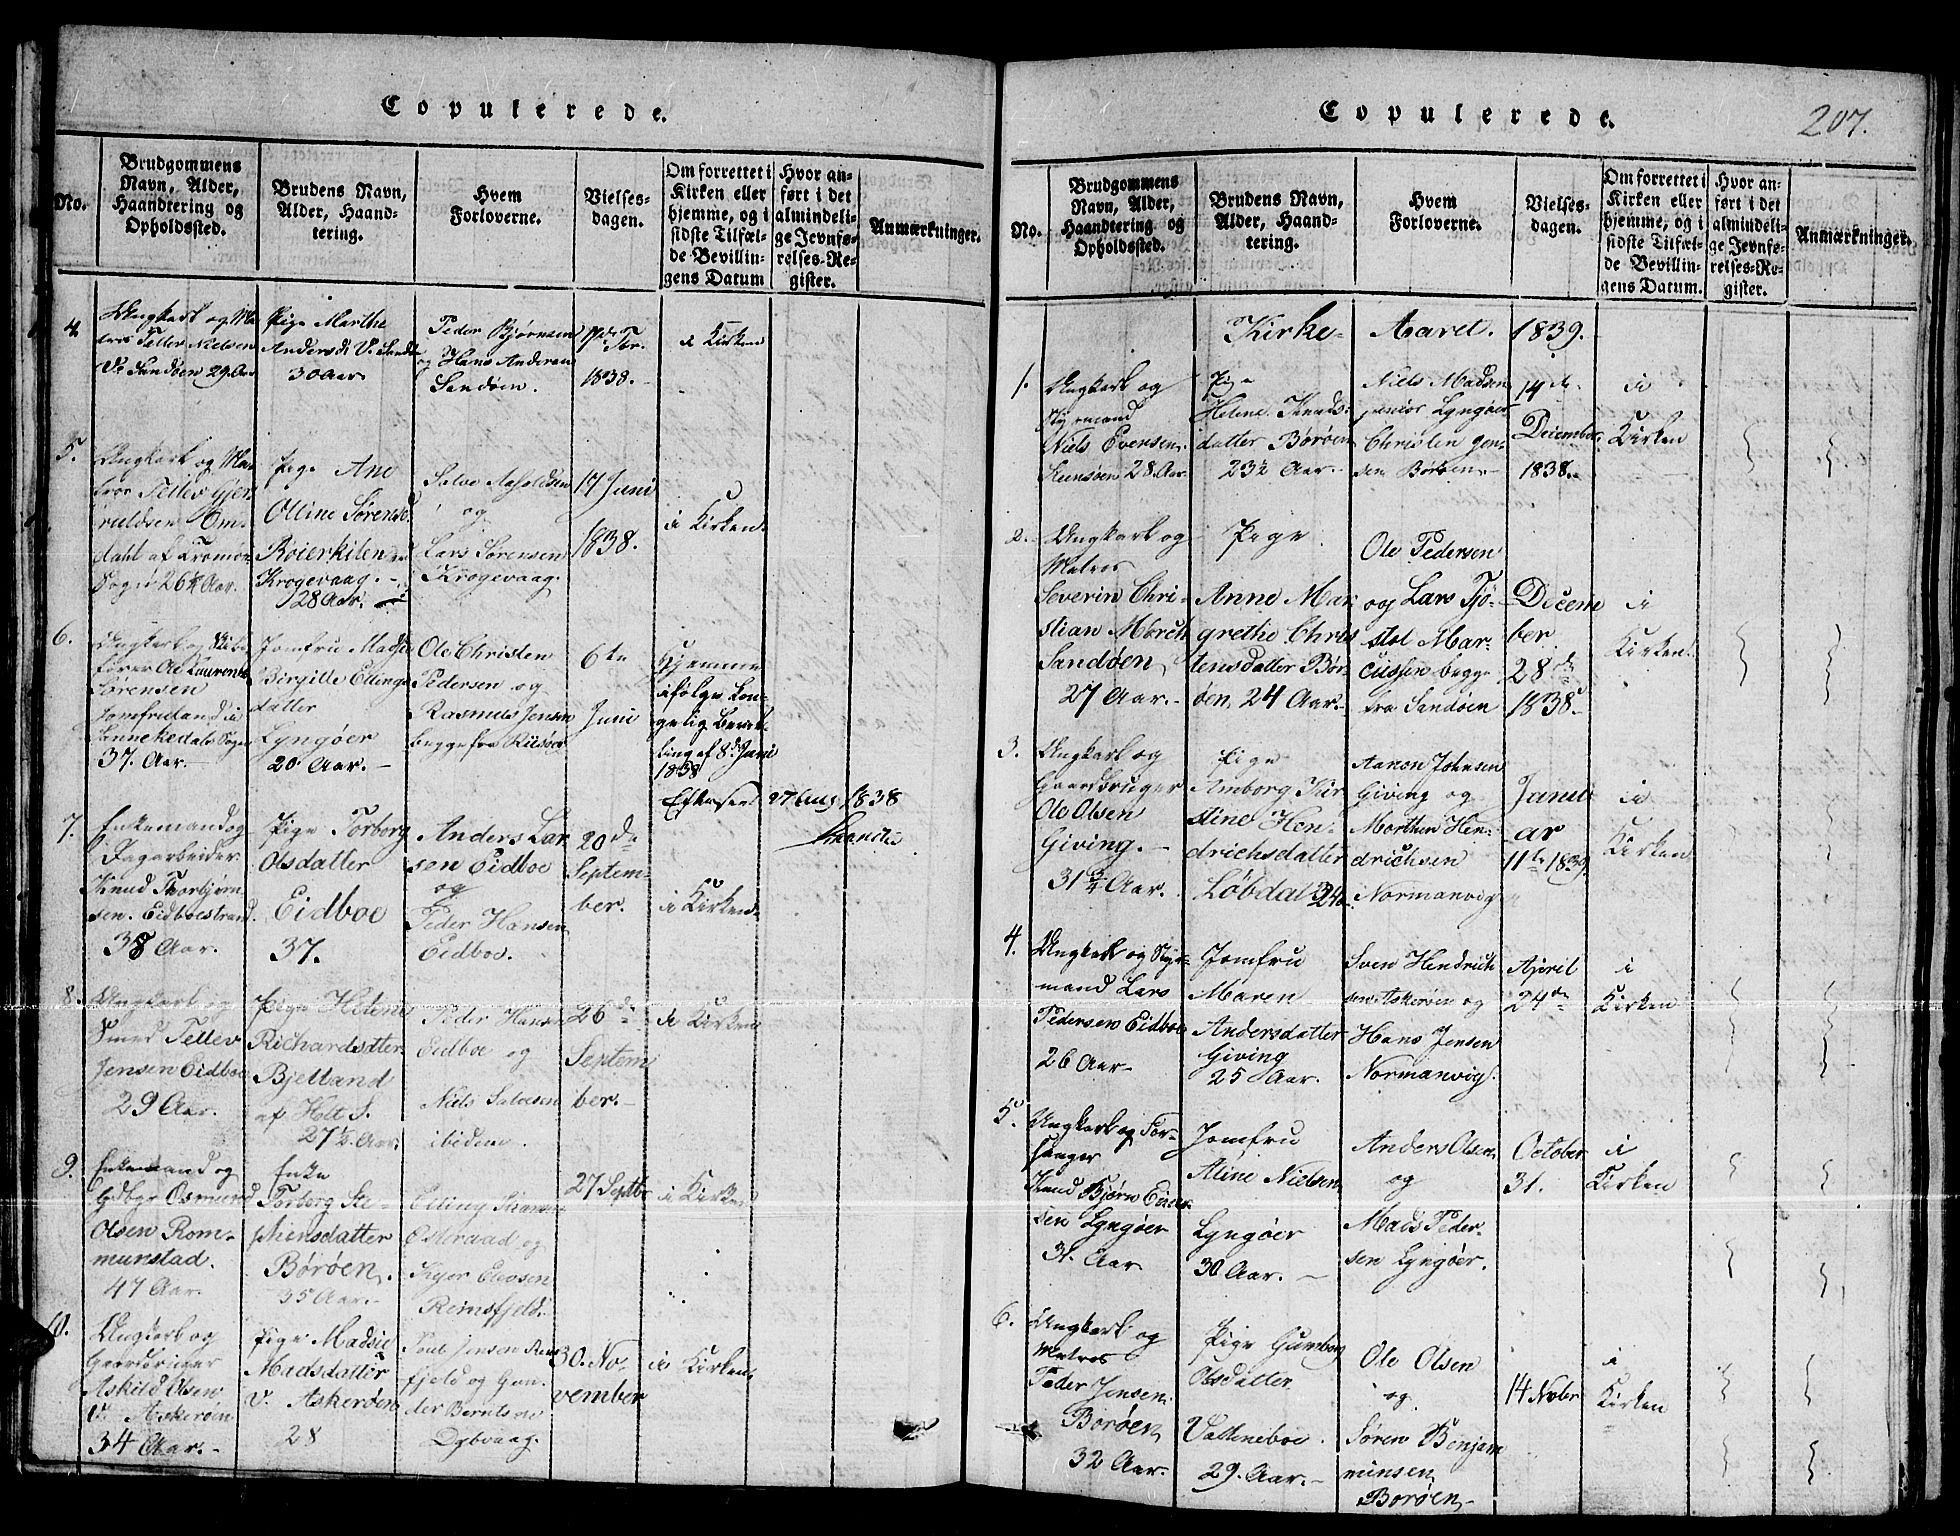 Copulerede.
No.
Brudgommens
Navn, Alder,
Haandtering og
Opholdssted.
Brudens Navn,
Alder, Haand-
tering.
Hvem
Forloverne.
Vielses-
dagen.
Om forrettet i
Kirken eller
hjemme, og i
sidste Tilfæl-
de Bevillin-
gens Datum
Hvor an-
ført i det
almindeli-
ge Jevnfø-
relses-Re-
gister.
Anmærkninger.
4.
Ungkarl og Ma-
tros Tellev Nielsen
Sandøen 29 Aar
Pige Marthe
Andersd. Sandø
30 Aar
Peder Bjørnsen
og Hans Andersen
Sandøen.
1838.
i Kirken
5.
Ungkarl og Ma-
tros Tellev Gjer-
uldsen Om-
dahl af Tromø
Sogn 26¼ Aar.
Pige Ane
Olline Sørensd.
Røierkilen
Krogevaag.
28 Aar.
Salve Aasoldsen
og
Lars Sørensen
Krogevaag.
17 Juni
1838.
i Kirken.
6.
Ungkarl og Skibs-
fører Ole Laurents
Sørensen
Jomfruland i
Sannikedals Sogn
37. Aar.
Jomfru Madsie
Birgitte Ellings
datter
Lyngøer
20 Aar.
Ole Christen
Pedersen og
Rasmus Jensen
begge fra Riisøer
6te
Juni
Hjemme
ifølge kon-
gelig Bevil-
ling af 8de Juni
1838
Efterseet 27 Aug 1838
7.
Enkemand og
Dagarbeider
Knud Thorbjørn-
sen. Eidboestrand.
38 Aar.
Pige Torborg
Olsdatter
Eidboe
37.
Anders Lar-
sen Eidboe
og
Peder Hansen
Eidboe.
20de
Septem-
ber.
i Kirken
8.
Ungkarl og
Smed Tellev
Jensen Eidboe
29 Aar.
Pige Helene
Richardsdatter
Bjelland
af Holt S.
27½ Aar.
Peder Hansen
Eidboe og
Niels Salvesen
ibidem.
26de
Septem
ber.
i Kirken
9.
Enkemand og
Gdbgr Osmund
Olsen Rom-
munstad.
47 Aar.
Enke
Torborg Ste-
phensdatter
Børøen.
35 Aar.
Elling
Osteraad og
Elevsen
Reinsfjeld.
27 Septbr
i Kirken
10.
Ungkarl og
Gaardbruger
Askild Olsen
Askerøen
34 Aar.
Pige Madsie
Madsdatter
Askerøen
28
Poul Jensen Reins
fjeld og Gun-
der Berntsen
Dybvaag.
30. No-
vember
i Kirken
Copulerede.
207.
No.
Brudgommens
Navn, Alder,
Haandtering og
Opholdssted.
Brudens Navn,
Alder, Haand-
tering.
Hvem
Forloverne.
Vielses-
dagen.
Om forrettet i
Kirken eller
hjemme, og i
sidste Tilfæl-
de Bevillin-
gens Datum.
Hvor an-
ført i det
almindeli-
ge Jevnfø-
relses-Re-
gister.
Anmærkninger.
Kirke- Aaret. 1839.
1.
Ungkarl og
Styrmand
Niels Evensen
Steensøen 28 Aar.
Pige
Helene Knuds-
datter Børøen
23½ Aar.
Niels Madsen
junior Lyngøer
Christen Jen-
sen Børøen
14de
December
1838.
i
Kirken
2.
Ungkarl og
Matros
Severin Chri-
stian Mørch
Sandøen,
27 Aar.
Pige
Anne Mar
grethe Chris
tensdatter Bør-
øen, 24 Aar.
Ole Pedersen
og Lars Tjø-
stel Mar-
cussen begge
fra Sandøen
Decem
ber
28de
1838.
i
Kirken.
3.
Ungkarl og
Gaardbruger
Ole Olsen
Giving.
31 ¾ Aar.
Pige
Amborg Kir
stine Hen-
drichsdatter
Løbdal 24
Aanon Johnsen
Giving og
Morthen Hen-
drichsen
Normanvig
Janu
ar
11te 1839.
i
Kirken
4.
Ungkarl og Styr-
mand Lars
Pedersen Eidboe
26 Aar.
Jomfru
Maren
Andersdatter
Giving
25 Aar.
Sven Hendrich
sen Askerøen og
Hans Jensen
Normanvig.
April
24de
i
Kirken
5.
Ungkarl og For-
sanger
Knud Bjørn Even-
sen Lyngøer
31. Aar
Jomfru
Aline Nielsen
Lyngøer
30 Aar.
Anders Olsen
og
Mads Peder-
sen Lyngøer.
October
31.
i
Kirken
6.
Ungkarl og
Matros
Peder Jensen
Børøen
32 Aar.
Pige Gunborg
Olsdatter
Vatteneboe.
29. Aar.
Ole Olsen
og
Søren Benjam
minsen
Borøen
14 Novbr
i
Kirken